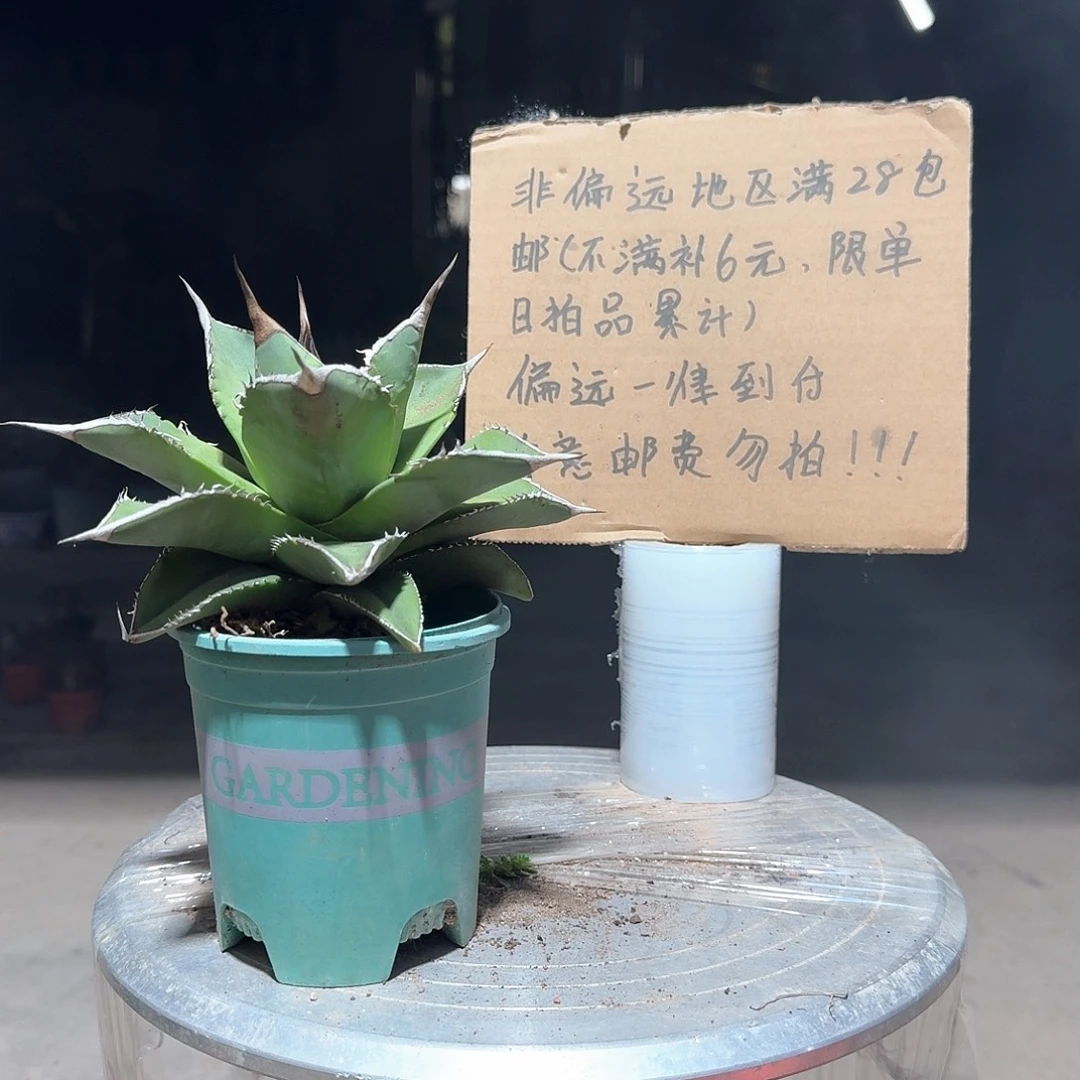 非偏远地区满28包
邮(不满补6元，限单
日拍品累计)
偏远一律到付
意邮费勿拍!!!
GARDENING